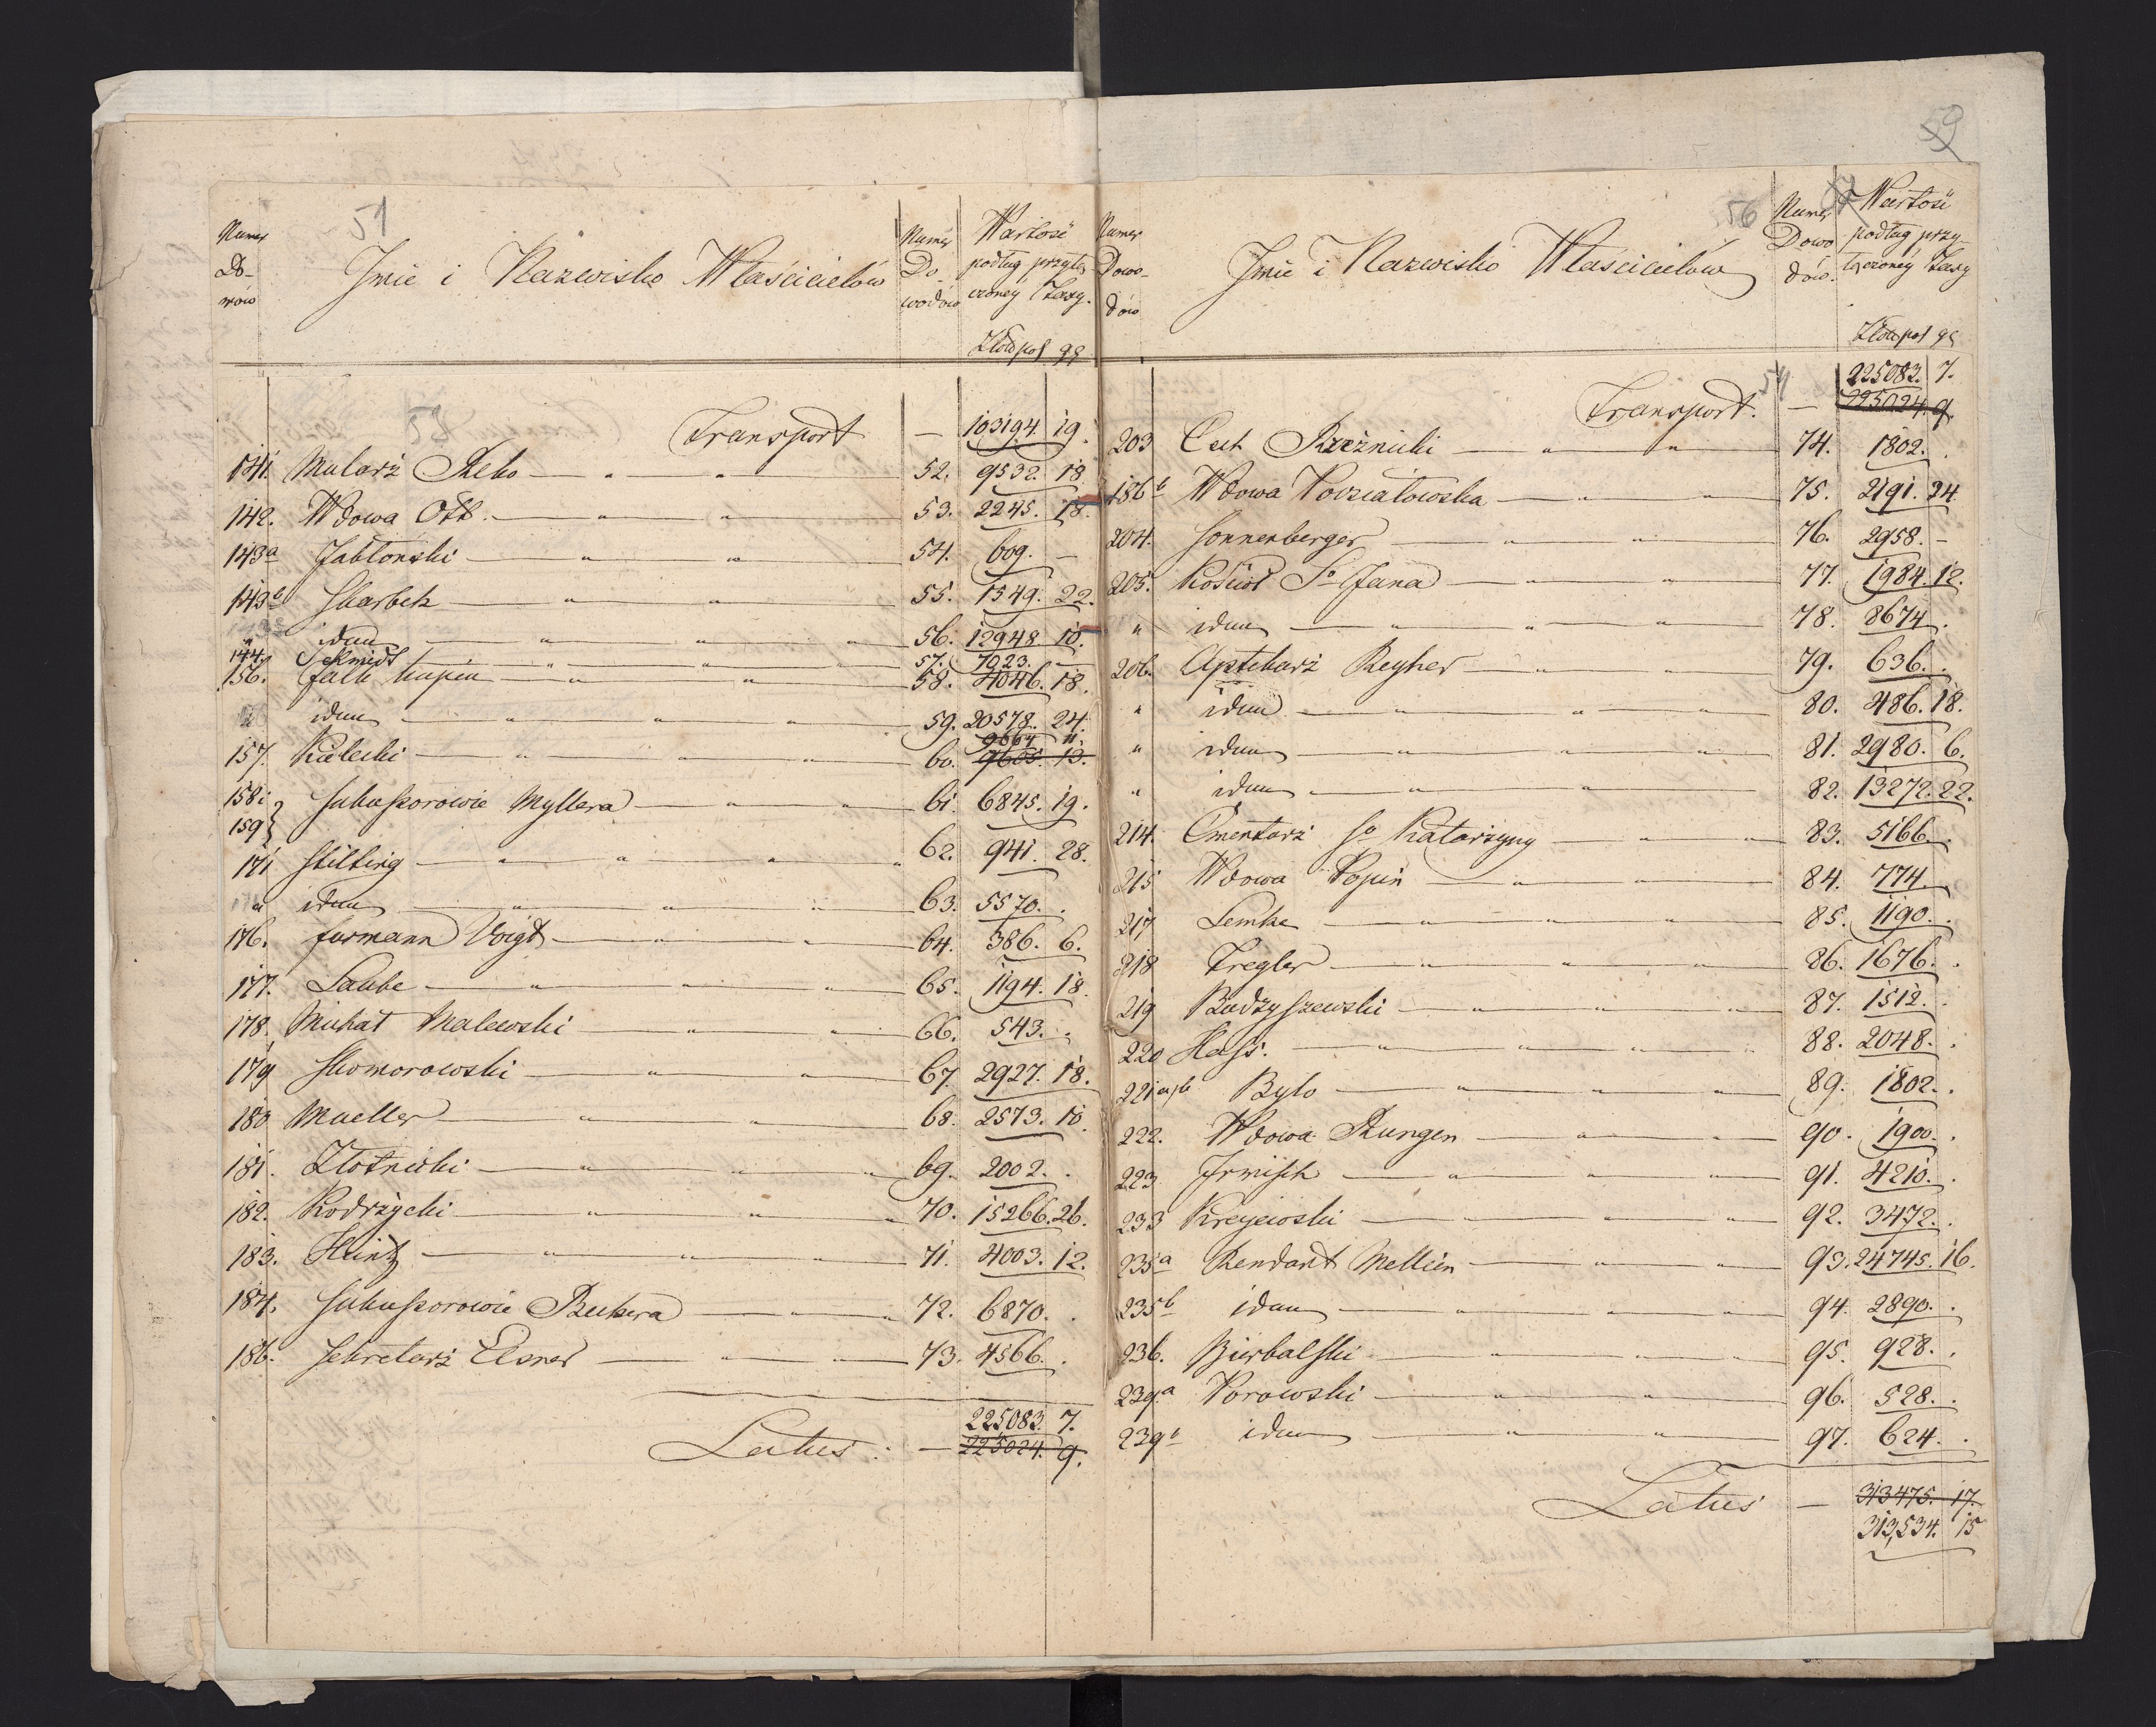 59
51
Numer Do-mów
Jmie i Nazwisko Właścicielów
Numer Do-wodów
Wartość podług przyłączoney Taxy.
Złotp. pol gg
53 Transport — 103194. 19.
141. Mularz Rebo — 52. 9532. 18.
142. Wdowa Ott. — 53. 2245. 18.
143a Jabłonski — 54. 609. —
143b Skarbek — 55. 1549. 22.
" idem — 56. 12948. 10.
144. Schmidt — 57. 7023. —
156. Falk kupiec — 58. 4046. 18.
idem — 59. 20578. 24.
9664 11.
157. Kulecki — 60. 9605. 13.
158 i 159 Sukessorowie Myllera — 61. 6845. 19.
171 Stilting — 62. 941. 28.
" idem — 63. 5570. .
176. furmann Voigt — 64. 386. 6.
177. Laube — 65. 1194. 18.
178. Michał Malewski — 66. 543. .
179 Skomorowski — 67. 2927. 18.
180 Mueller — 68. 2573. 10.
181. Złotnicki — 69. 2002. .
182. Kodrzycki — 70. 15266. 26.
183. Heintz — 71. 4003. 12.
184. Sukessorowie Beckera — 72. 6870. .
186. Sekretarz Elsner — 73. 4566. .
225083. 7.
Latus: — 225024. 9.
56
Numer Dowo-dów
Jmie i Nazwisko Właścicielów
Numer Dowo-dów.
Wartość podług przyłączoney Taxy
Złotp. pol gg
54
225083. 7.
Transport. — 225024. 9.
203 Cech Rzeźnicki — 74. 1802. .
186b Wdowa Powiatowska — 75. 2191. 24.
204. Sonnenberger — 76. 2958. —
205. Kościoł So Jana — 77. 1984. 12.
" idem — 78. 8674. .
206. Aptekarz Reyher — 79. 636. .
" idem — 80. 486. 18.
" idem — 81. 2980. 6.
" idem — 82. 13272. 22.
214. Cmentarz So Katarzyny — 83. 5166. .
215 Wdowa — 84. 774.
217 Lemke — 85. 1190. .
218 Tregler — 86. 1676. .
219 Budzyszewski — 87. 1512. .
220 Hass. — 88. 2048. .
221a/b Bylo — 89. 1802. .
222. Wdowa Rungen — 90. 1900. .
223 Irmisch — 91. 4210. .
233 Kreyewski — 92. 3472. .
235a Rendant Mellien — 93. 24745. 16.
235b idem — 94. 2890. .
236. Bierbalski — 95. 928. .
239a Borowski — 96. 528. .
239b idem — 97. 624. .
Latus — 313475. 17.
313,534. 15